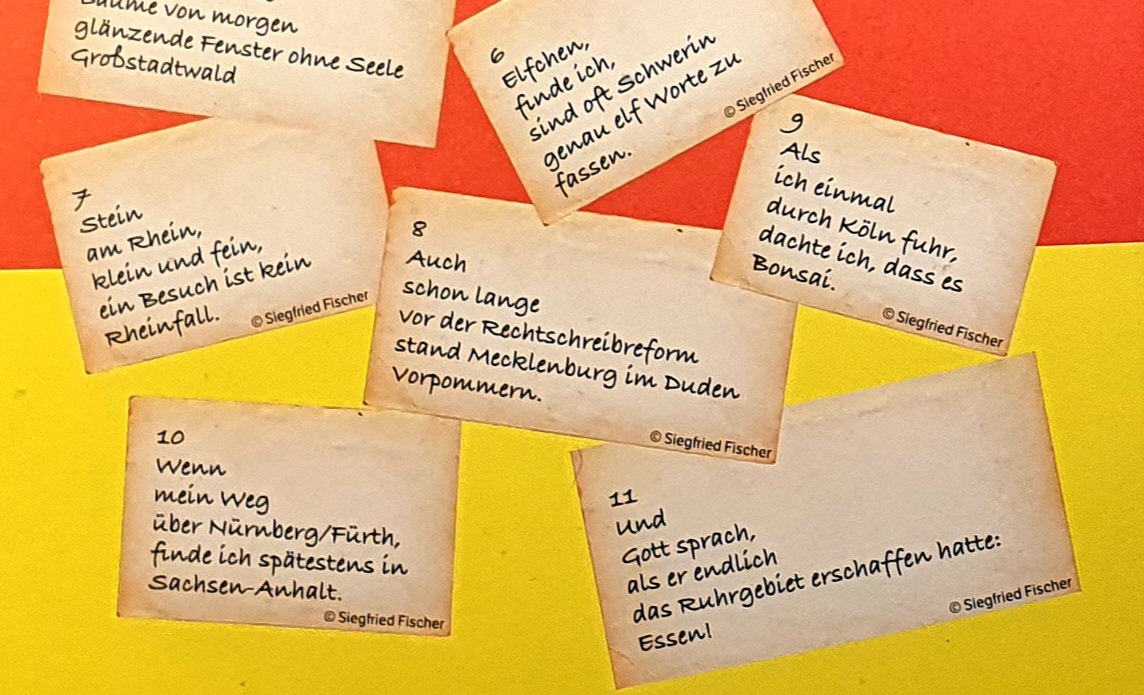 Bäume von morgen
glänzende Fenster ohne Seele
Großstadtwald
6
Elfchen,
finde ich,
sind oft Schwerin
genau elf Worte zu
fassen.
© Siegfried Fischer
7
Stein
am Rhein,
klein und fein,
ein Besuch ist kein
Rheinfall.
© Siegfried Fischer
8
Auch
schon lange
vor der Rechtschreibreform
stand Mecklenburg im Duden
Vorpommern.
© Siegfried Fischer
9
Als
ich einmal
durch Köln fuhr,
dachte ich, dass es
Bonsai.
© Siegfried Fischer
10
Wenn
mein Weg
über Nürnberg/Fürth,
finde ich spätestens in
Sachsen-Anhalt.
© Siegfried Fischer
11
Und
Gott sprach,
als er endlich
das Ruhrgebiet erschaffen hatte:
Essen!
© Siegfried Fischer